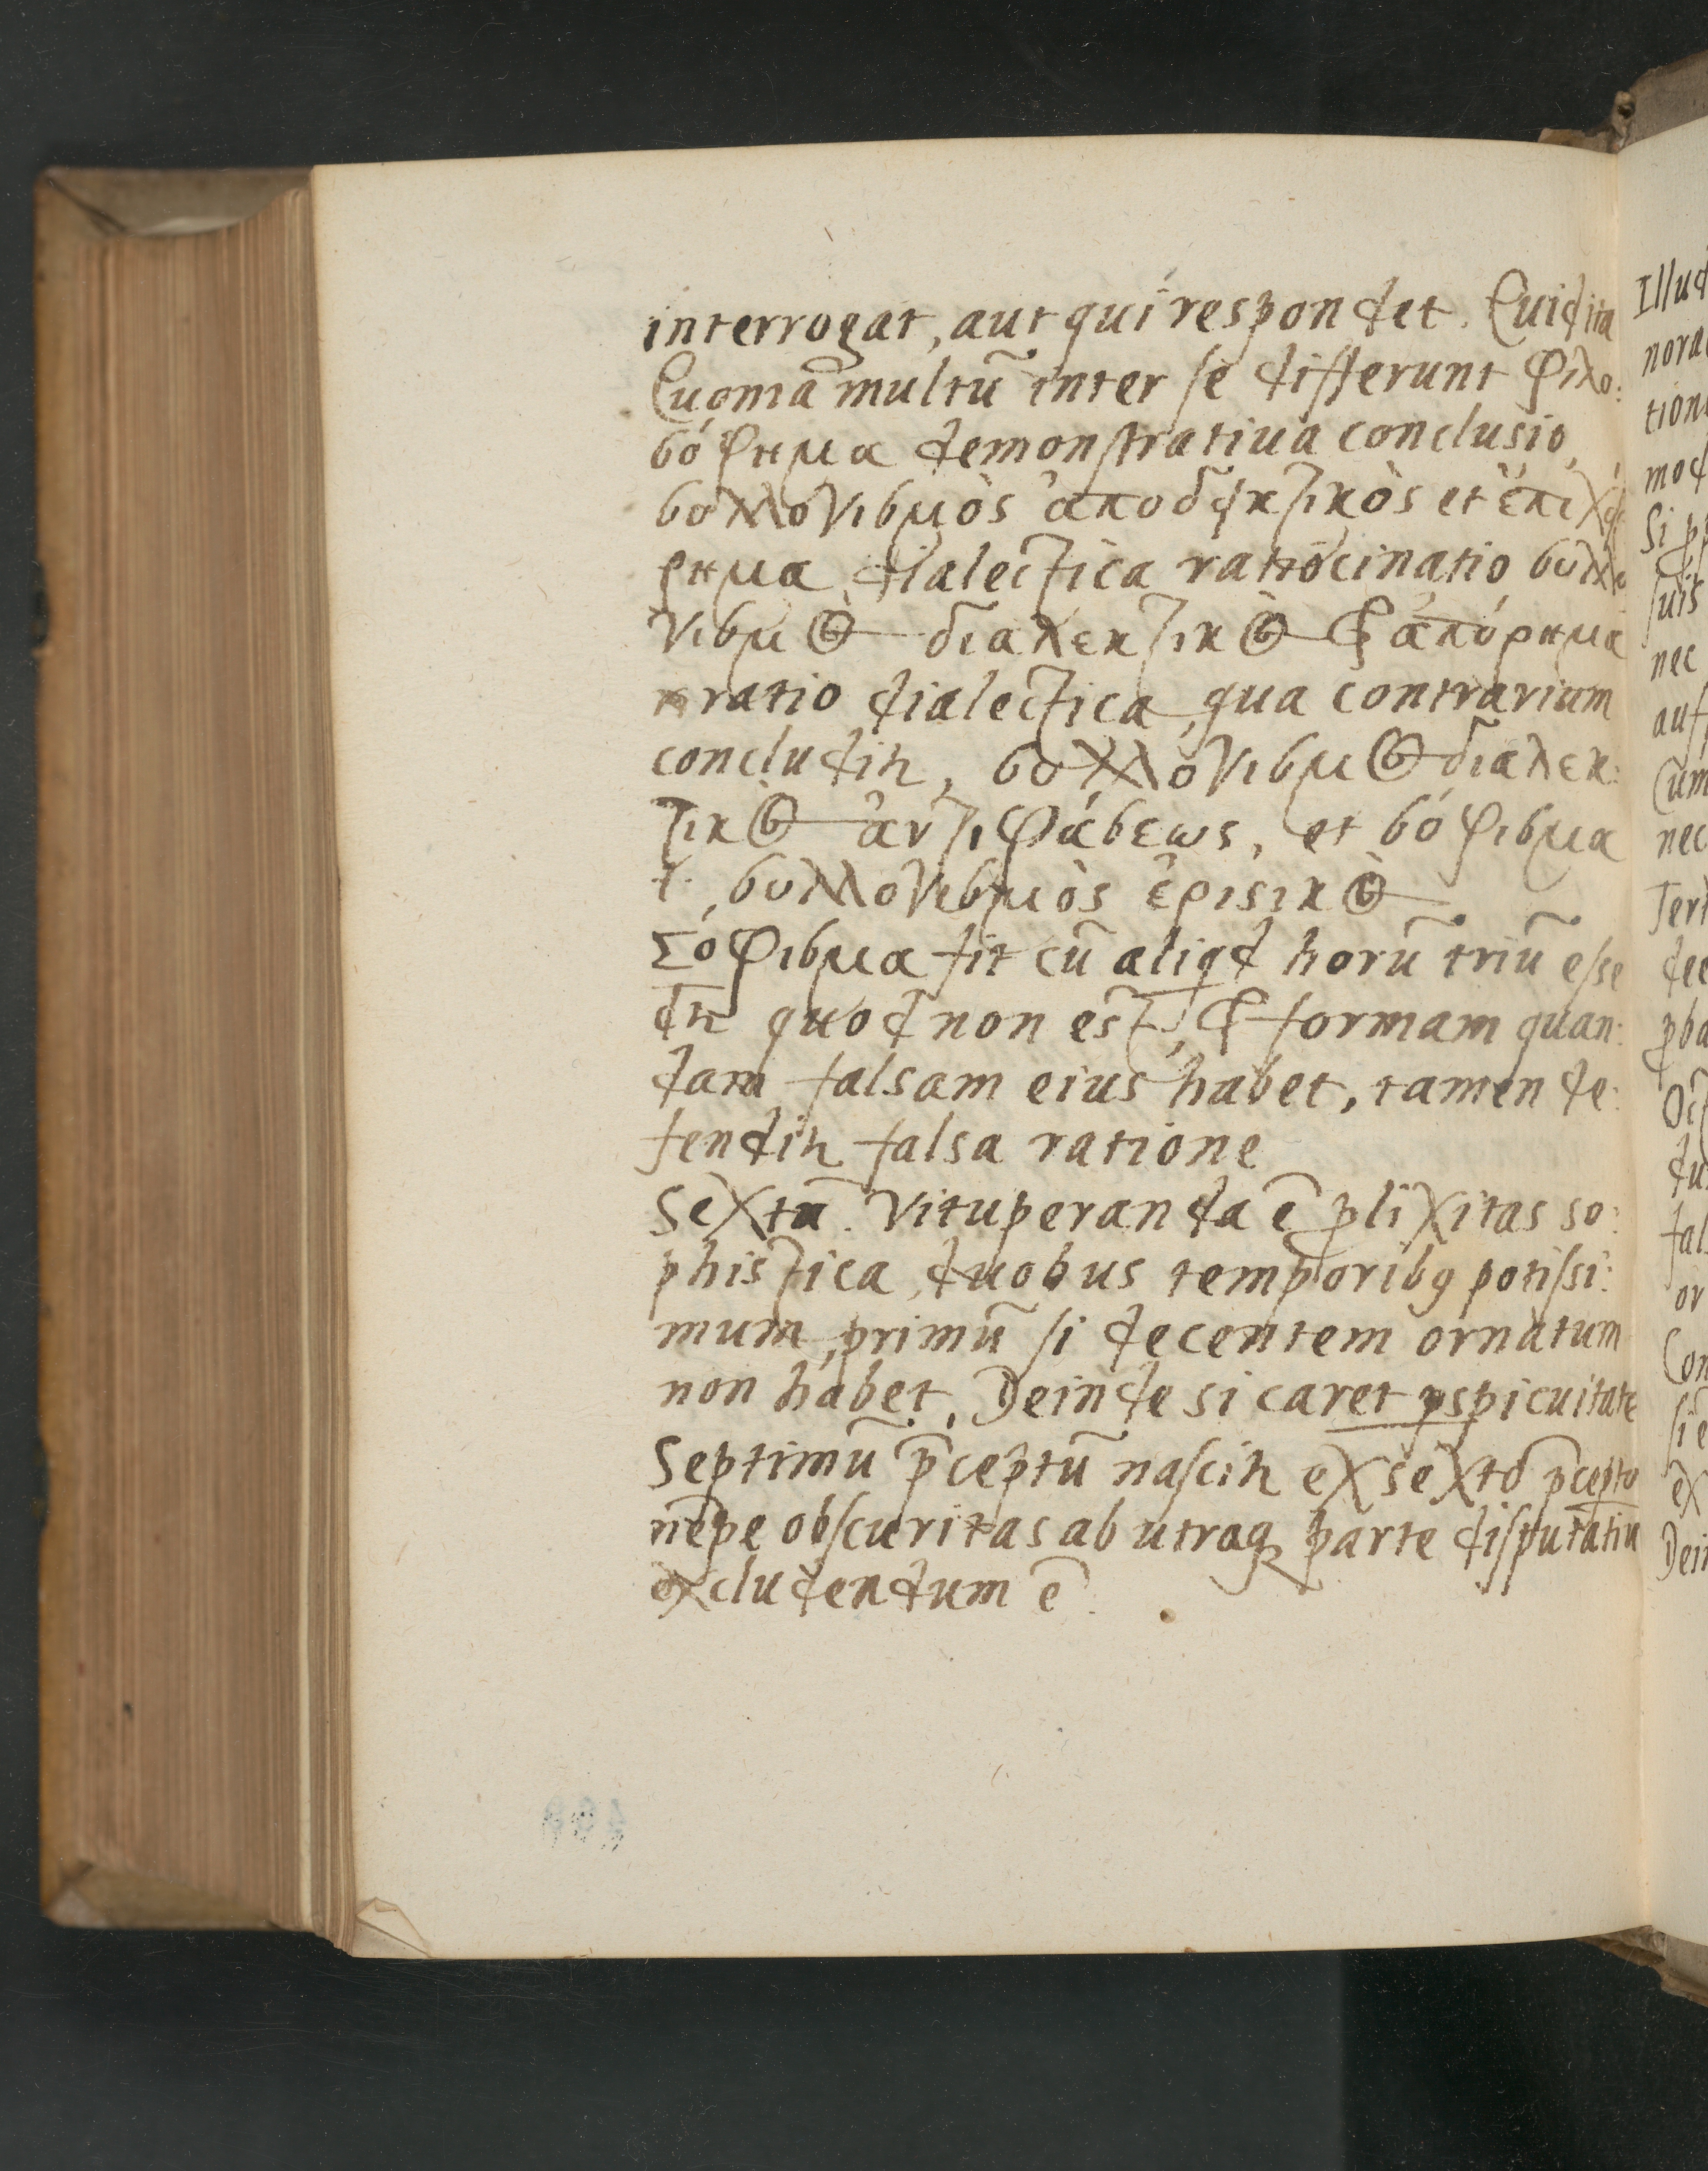 interrogat, aut qui respondet. Cuid ita
Cuoniā multū inter se differunt φιλο:
σόφημα demonstratiua conclusio,
συλλογισμὸς ἀποδεικτικὸς et ἐπιχεί
ρημα dialectica ratiocinatio, συλλο
γισμὸς διαλεκτικὸς & ἀπόρημα
ratio dialectica, qua contrarium
concluditr, συλλογισμὸς διαλεκ:
τικὸς ἀντιφάσεως, et σόφισμα
.i. συλλογισμὸς ἐριστικὸς
Σόφισμα fit cū aliqd horū triū esse
dr quod non est, & formam quan:
dam falsam eius habet, tamen de:
fenditr falsa ratione
Sextū. Vituperanda ē plixitas so:
phistica, duobus temporibq potissi:
mum, primū si decentem ornatum
non habet, Deinde si caret pspicuitate
Septimū p̄ceptū nascitr ex sexto p̄cepto
nēpe obscuritas ab utraq parte disputatiu
excludendum ē.
Illud
nora
tion
mod
Si pp
suis
nec
auf
Cum
nec
Tert
dee
pba
du
fal
or
Con
si e
ex
Dein